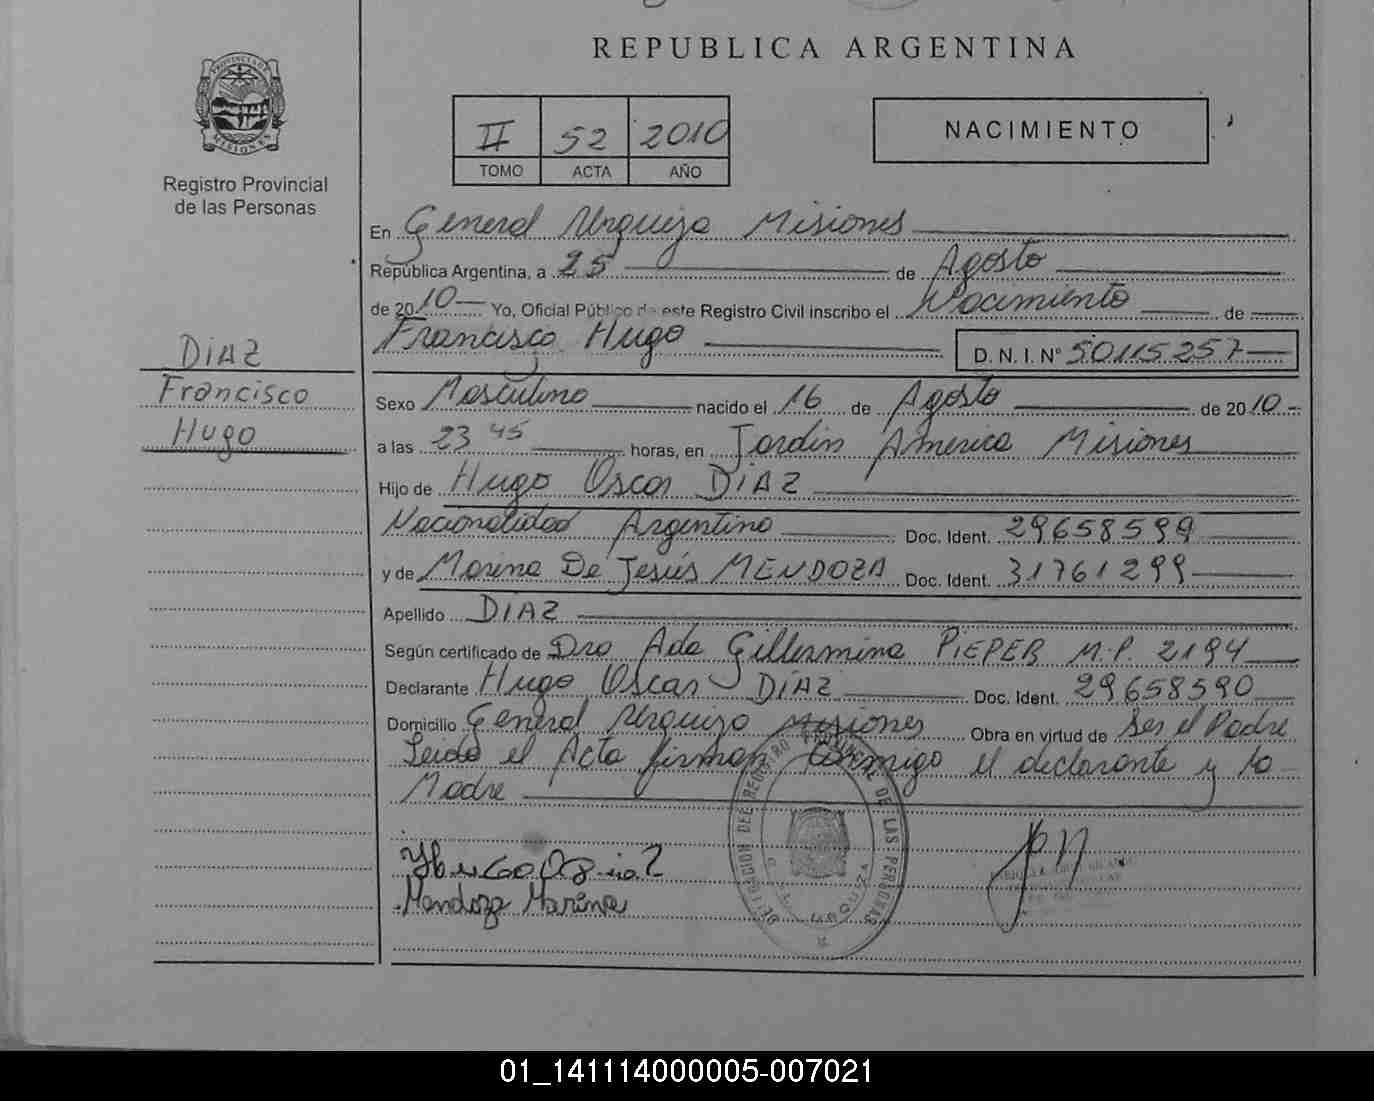 REPUBLICA ARGENTINA
PROVINCIA DE
MISIONES
Registro Provincial
de las Personas
II 52 2010
TOMO ACTA AÑO
NACIMIENTO
En General Urquiza Misiones
República Argentina, a 25 de Agosto
de 2010 Yo, Oficial Público de este Registro Civil inscribo el Nacimiento de
Francisco Hugo D. N. I. Nº 50115257
DIAZ
Francisco
Hugo
Sexo Masculino nacido el 16 de Agosto de 2010
a las 23 45 horas, en Jardin America Misiones
Hijo de Hugo Oscar DIAZ
Nacionalidad Argentino Doc. Ident. 29658599
y de Marina De Jesús MENDOZA Doc. Ident. 31761299
Apellido DIAZ
Según certificado de Dra Ada Gillermina PIEPER M.P. 2194
Declarante Hugo Oscar DIAZ Doc. Ident. 29658590
Domicilio General Urquiza Misiones Obra en virtud de Ser el Padre
Leida el Acta firman conmigo el declarante y la
Madre
DELEGACION DEL REGISTRO PROVINCIAL DE LAS PERSONAS
Mendoza Marina
01_141114000005-007021